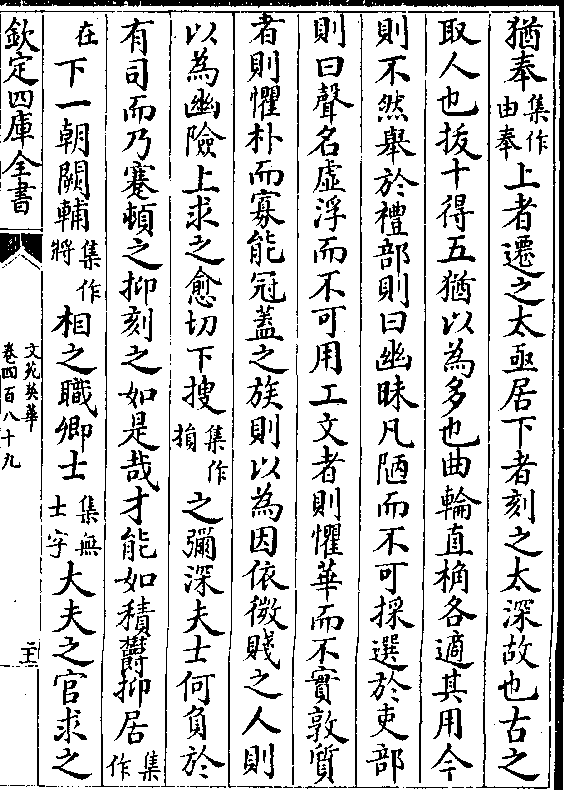 猶奉集作由奉上者遷之太亟居下者刻之太深故也古之
取人也拔十得五猶以為多也曲輪直桷各適其用今
則不然舉於禮部則曰幽昧凡陋而不可採選於吏部
則曰聲名虛浮而不可用工文者則懼華而不實敦質
者則懼朴而寡能冠蓋之族則以為因依微賤之人則
以為幽險上求之愈切下搜集作損之彌深夫士何負於
有司而乃蹇頓之抑刻之如是哉才能如積欝抑居集作
在下一朝闕輔集作將相之職卿士集無士字大夫之官求之
欽定四庫全書
文苑英華
卷四百八十九
二十五